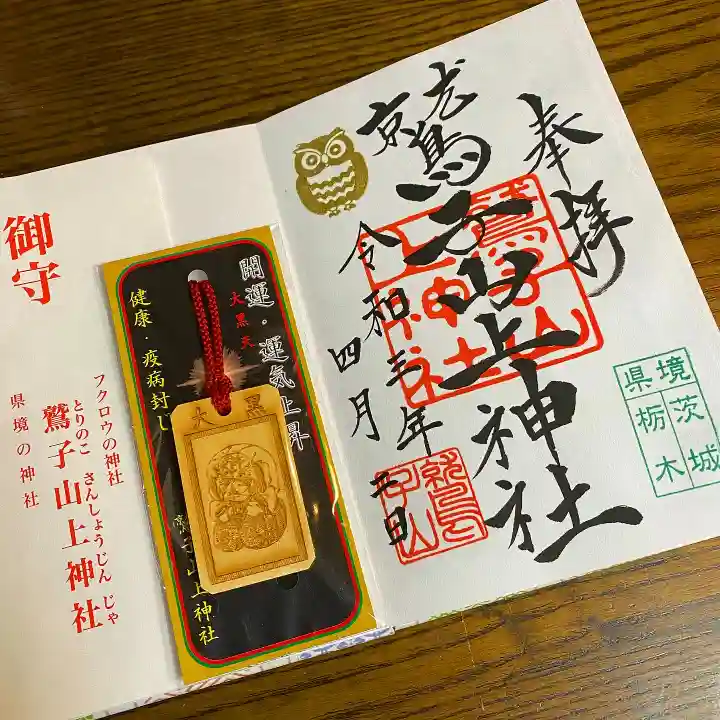 奉拝
鷲子山上神社
令和三年四月三日
県境
栃茨
木城
御守
フクロウの神社
とりのこ さんしょうじんじゃ
鷲子山上神社
県境の神社
開運・運気上昇
大黒天
健康・疫病封じ
鷲子山上神社
大黒